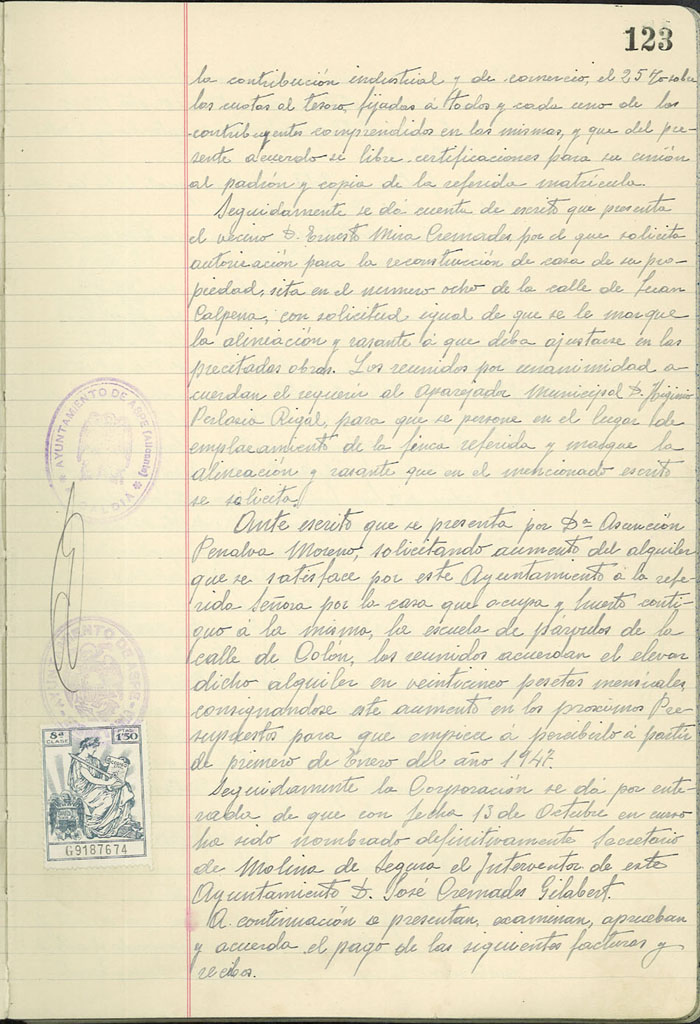 123
la contribución industrial y de comercio, el 25 % sobre
las cuotas al tesoro, fijadas a todos y cada uno de los
contribuyentes comprendidos en las mismas, y que del pre-
sente acuerdo se libre certificaciones para su unión
al padrón y copia de la referida matrícula.
Seguidamente se dá cuenta de escrito que presenta
el vecino D. Ernesto Mira Cremades, por el que solicita
autorización para la reconstrucción de casa de su pro-
piedad, sita en el numero ocho de la calle de Juan
Calpena, con solicitud igual de que se le marque
la alineación y rasante á que deba ajustarse en las
precitadas obras. Los reunidos por unanimidad a-
cuerdan el requerir al Aparejador Municipal D. Higinio
Perlasia Rigal, para que se persone en el lugar de
emplazamiento de la finca referida y marque la
alineación y rasante que en el mencionado escrito
se solicita.
Ante escrito que se presenta por Dª Asunción
Penalva Moreno, solicitando aumento del alquiler
que se satisface por este Ayuntamiento á la refe-
rida Señora por la casa que ocupa y huerto conti-
guo á la misma, la escuela de párvulos de la
calle de Colon, los reunidos acuerdan el elevar
dicho alquiler en veinticinco pesetas mensuales,
consignandose este aumento en los proximos Pre-
supuestos para que empiece a percibirlo á partir
de primero de Enero del año 1947.
Seguidamente la Corporación se dá por ente-
rada, de que con fecha 13 de Octubre en curso
ha sido nombrado definitivamente Secretario
de Molina de Segura el Interventor de este
Ayuntamiento D. José Cremades Gilabert.
A continuación se presentan, examinan, aprueban
y acuerda el pago de las siguientes facturas y
recibos.
AYUNTAMIENTO DE ASPE (Alicante)
ALCALDIA
AYUNTAMIENTO DE ASPE
8ª CLASE
PTAS. 1'50
G9187674